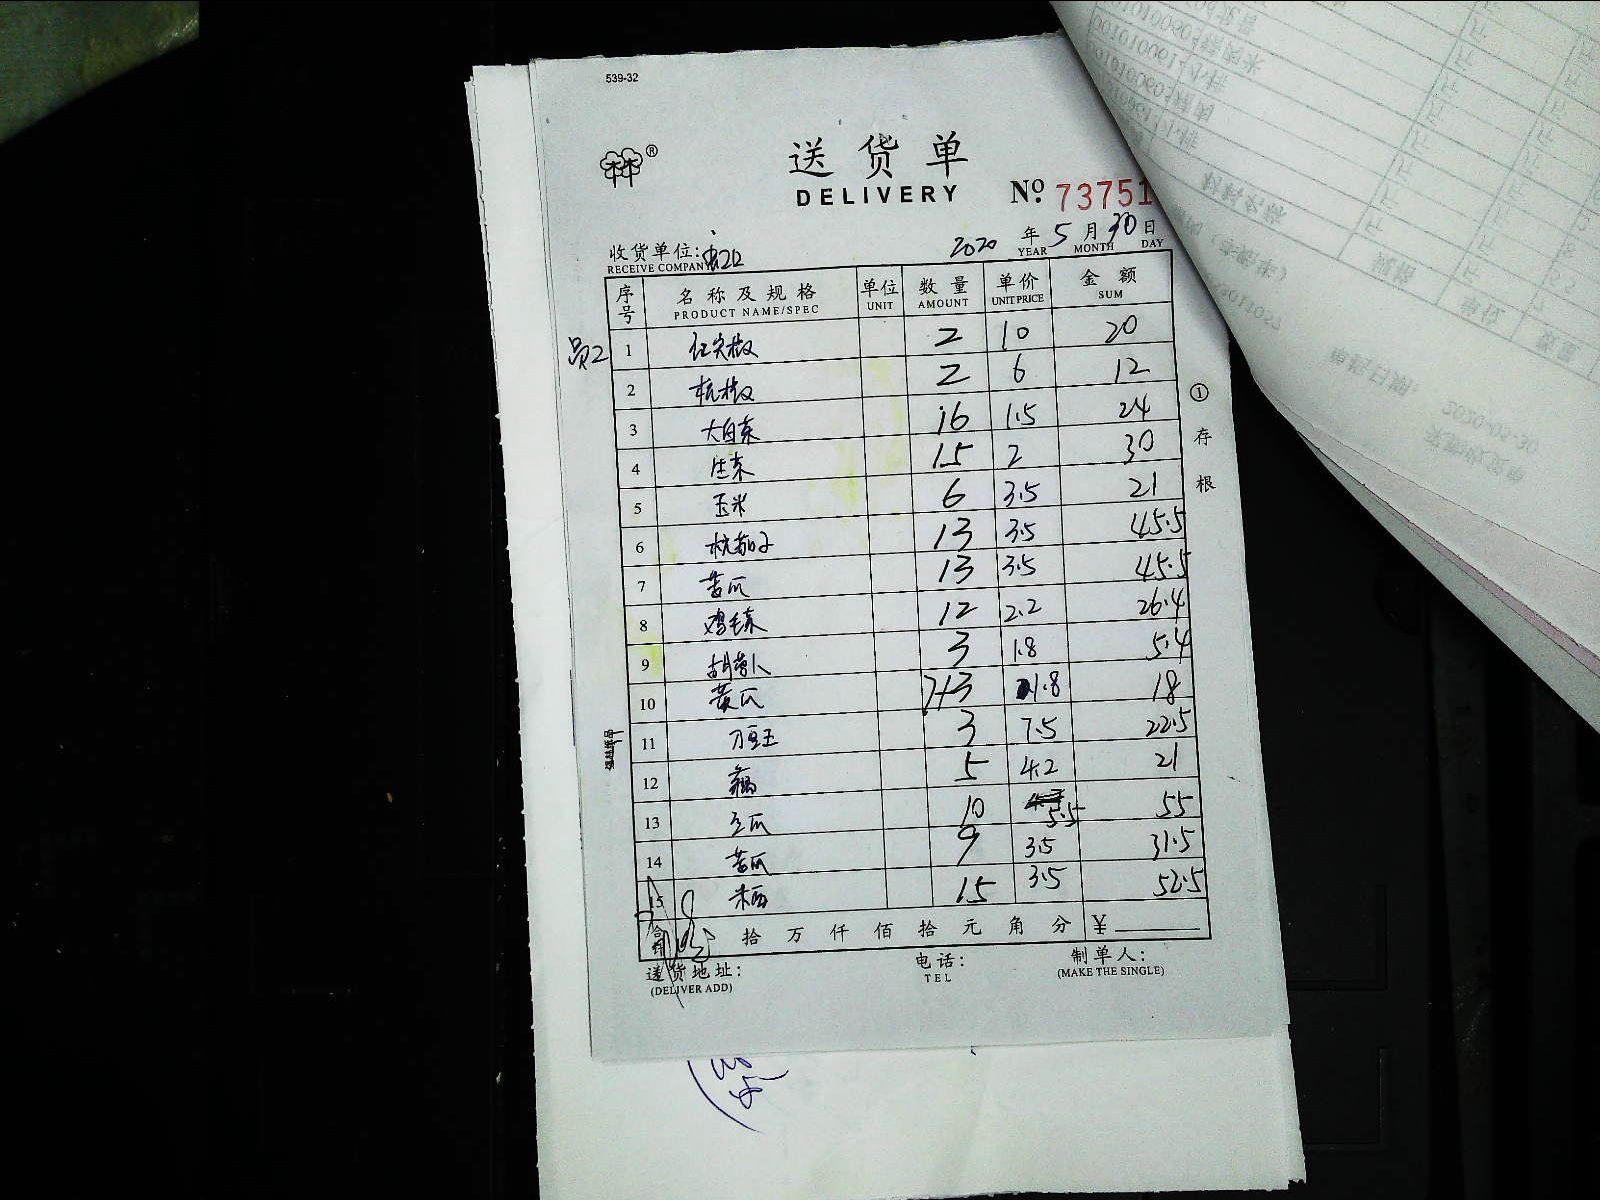 539-32
送货单
DELIVERY
№ 73751
收货单位:
RECEIVE COMPANY
2020 年 5 月 30 日
YEAR MONTH DAY
序号 名称及规格 单位 数量 单价 金额
PRODUCT NAME/SPEC UNIT AMOUNT UNIT PRICE SUM
员2
1 红尖椒 2 10 20
2 杭椒 2 6 12
3 大白菜 16 1.5 24
4 生菜 15 2 30
5 玉米 6 3.5 21
6 杭茄子 13 3.5 45.5
7 苦瓜 13 3.5 45.5
8 鸡毛菜 12 2.2 26.4
9 胡萝卜 3 1.8 5.4
10 黄瓜 7+3 1.8 18
11 刀豆 3 7.5 22.5
12 藕 5 4.2 21
13 10 5.5 55
14 苦瓜 9 3.5 31.5
15 15 3.5 52.5
合计 拾 万 仟 佰 拾 元 角 分 ¥
送货地址:
(DELIVER ADD)
电话:
TEL
制单人:
(MAKE THE SINGLE)
①存根